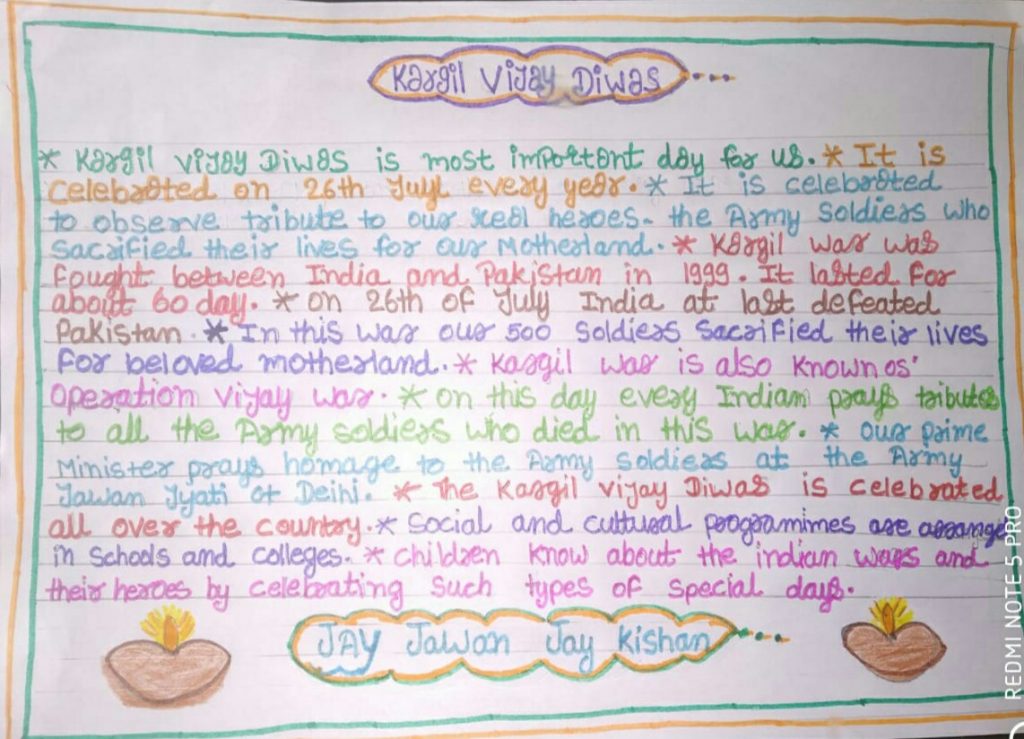 Kargil Vijay Diwas...
* Kargil Vijay Diwas is most important day for us. * It is
celebrated on 26th July every year. * It is celebrated
to observe tribute to our real heroes. the Army Soldiers who
sacrified their lives for our Motherland. * Kargil war was
fought between India and Pakistan in 1999. It lasted for
about 60 day. * on 26th of July India at last defeated
Pakistan. * In this war our 500 soldiers sacrified their lives
for beloved motherland. * Kargil war is also known os'
Operation Vijay war. * on this day every Indian prays tributes
to all the Army soldiers who died in this war. * our prime
Minister prays homage to the Army soldiers at the Army
Jawan Jyati of Delhi. * The Kargil Vijay Diwas is celebrated
all over the country. * Social and cultural programimes are arrange
in schools and colleges. * children know about the indian wars and
their heroes by celebrating such types of special days.
JAY Jawan Jay Kishan...
REDMI NOTE 5 PRO